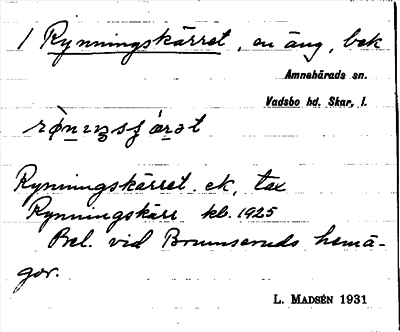 1 Rynningskärret, en äng, bek
Amnehärads sn.
Vadsbo hd. Skar. l.
Rynningskärret. ek, tax
Rynningskärr kb. 1925
Bel. vid Brunseruds hemä-
gor.
L. MADSÉN 1931